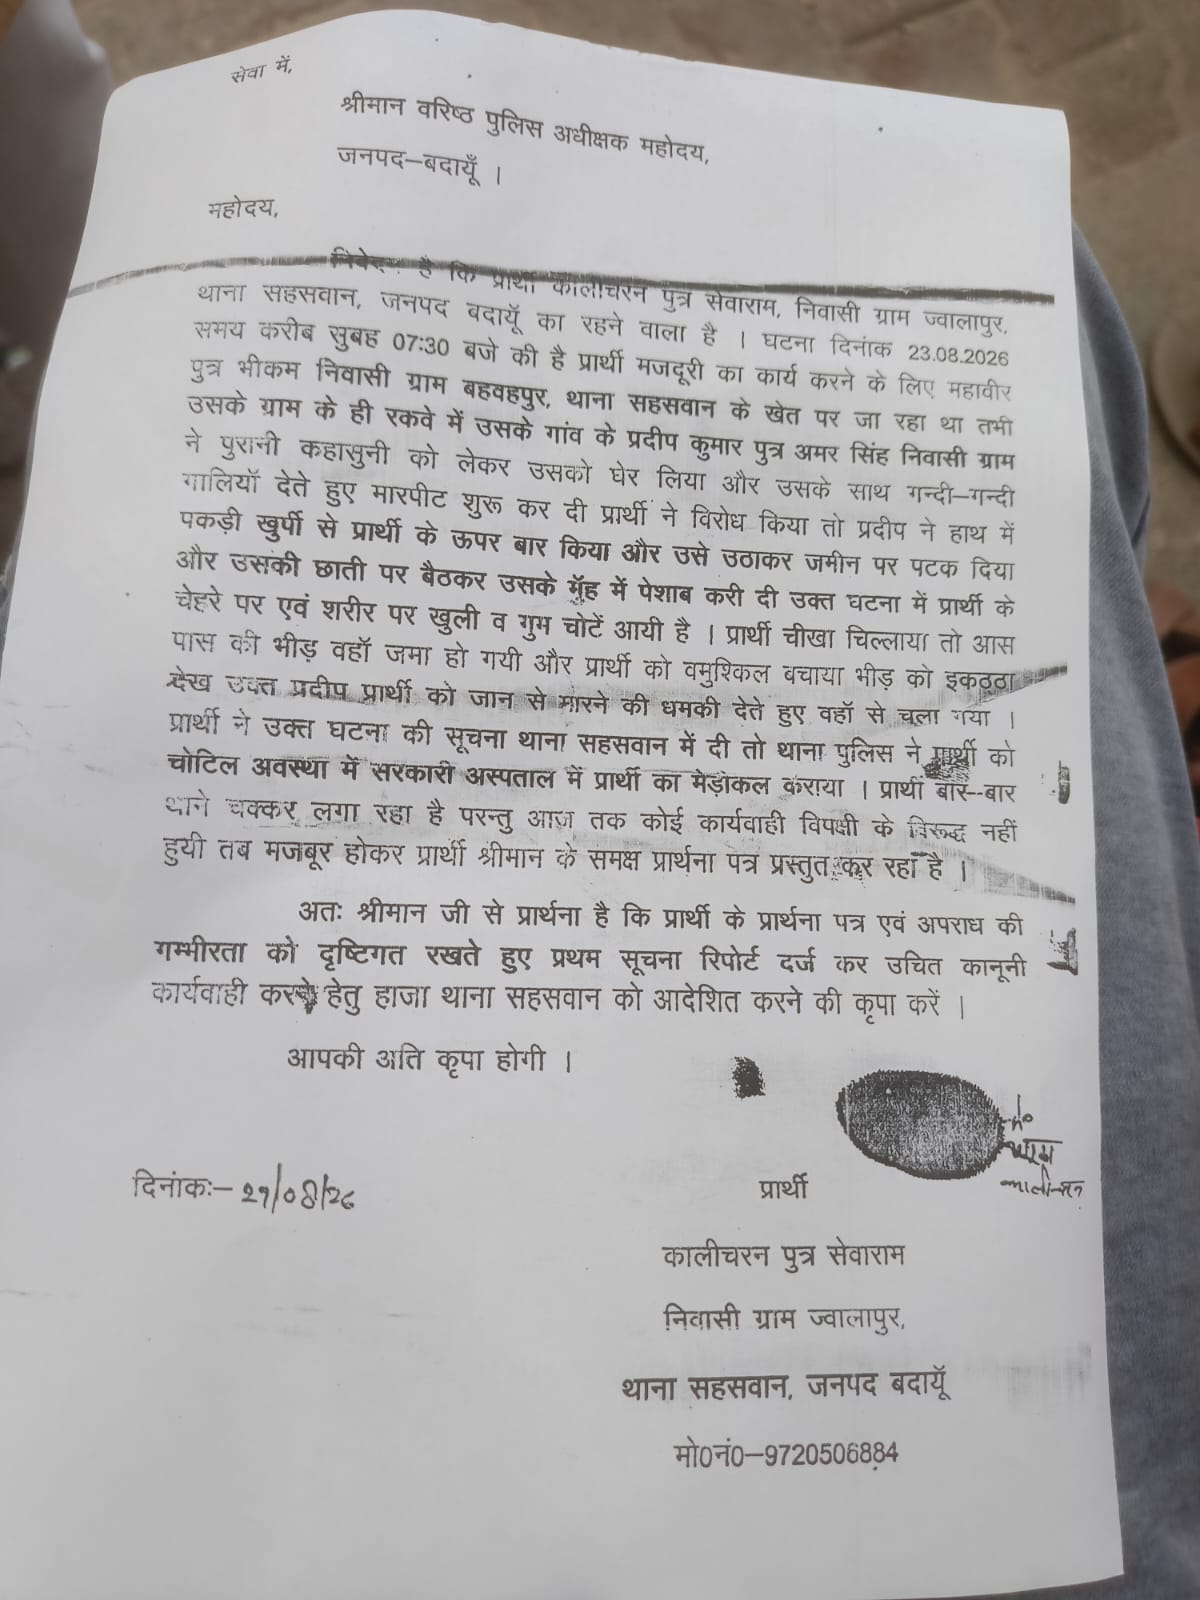 सेवा में,
श्रीमान वरिष्ठ पुलिस अधीक्षक महोदय,
जनपद–बदायूँ ।
महोदय,
है कि प्रार्थी कालीचरन पुत्र सेवाराम, निवासी ग्राम ज्वालापुर,
थाना सहसवान, जनपद बदायूँ का रहने वाला है । घटना दिनांक 23.08.2026
समय करीब सुबह 07:30 बजे की है प्रार्थी मजदूरी का कार्य करने के लिए महावीर
पुत्र भीकम निवासी ग्राम बहवहपुर, थाना सहसवान के खेत पर जा रहा था तभी
उसके ग्राम के ही रकवे में उसके गांव के प्रदीप कुमार पुत्र अमर सिंह निवासी ग्राम
ने पुरानी कहासुनी को लेकर उसको घेर लिया और उसके साथ गन्दी–गन्दी
गालियॉ देते हुए मारपीट शुरू कर दी प्रार्थी ने विरोध किया तो प्रदीप ने हाथ में
पकड़ी खुर्पी से प्रार्थी के ऊपर बार किया और उसे उठाकर जमीन पर पटक दिया
और उसकी छाती पर बैठकर उसके मॅह में पेशाब करी दी उक्त घटना में प्रार्थी के
चेहरे पर एवं शरीर पर खुली व गुम चोटें आयी है । प्रार्थी चीखा चिल्लाया तो आस
पास की भीड़ वहॉ जमा हो गयी और प्रार्थी को वमुश्किल बचाया भीड़ को इकठठा
देख उक्त प्रदीप प्रार्थी को जान से मारने की धमकी देते हुए वहॉ से चला गया ।
प्रार्थी ने उक्त घटना की सूचना थाना सहसवान में दी तो थाना पुलिस ने प्रार्थी को
चोटिल अवस्था में सरकारी अस्पताल में प्रार्थी का मेड़ीकल कराया । प्रार्थी बार–बार
थाने चक्कर लगा रहा है परन्तु आज तक कोई कार्यवाही विपक्षी के विरूद्ध नहीं
हुयी तब मजबूर होकर प्रार्थी श्रीमान के समक्ष प्रार्थना पत्र प्रस्तुत कर रहा है ।
अतः श्रीमान जी से प्रार्थना है कि प्रार्थी के प्रार्थना पत्र एवं अपराध की
गम्भीरता को दृष्टिगत रखते हुए प्रथम सूचना रिपोर्ट दर्ज कर उचित कानूनी
कार्यवाही करने हेतु हाजा थाना सहसवान को आदेशित करने की कृपा करें ।
आपकी अति कृपा होगी ।
दिनांकः–
प्रार्थी
कालीचरन पुत्र सेवाराम
निवासी ग्राम ज्वालापुर,
थाना सहसवान, जनपद बदायूँ
मो0नं0–9720506884